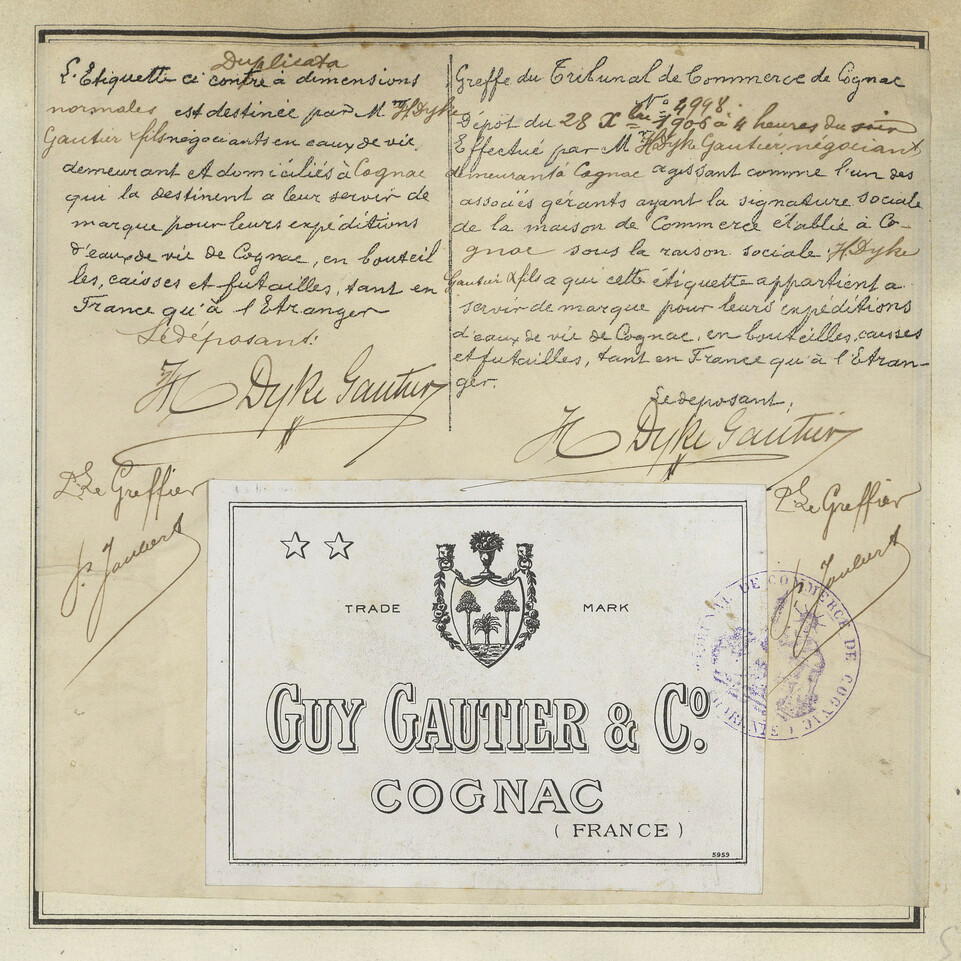 Duplicata
L'Etiquette ci contre à dimensions
normales est destinée par Mr H Dyke
Gautier & fils négociants en eaux de vie,
demeurant et domiciliés à Cognac
qui la destinent a leur servir de
marque pour leurs expéditions
d'eaux de vie de Cognac, en bouteil
les, caisses et futailles, tant en
France qu'à l'Etranger
Le déposant:
H Dyke Gautier
Pr Le Greffier
J. Joubert
Greffe du Tribunal de Commerce de Cognac
No 4998.
Dépot du 28 Xbre 1906 à 4 heures du soir
Effectué par Mr H Dyke Gautier, négociant
demeurant à Cognac agissant comme l'un des
associés gérants ayant la signature sociale
de la maison de Commerce établie à Co-
gnac sous la raison sociale H. Dyke
Gautier & fils a qui cette étiquette appartient a
servir de marque pour leurs expéditions
d'eaux de vie de Cognac, en bouteilles, caisses
et futailles, tant en France qu'à l'Etran-
ger.
Le deposant,
H Dyke Gautier
Pr Le Greffier
J. Joubert
TRADE MARK
GUY GAUTIER & Co.
COGNAC
(FRANCE)
5959
TRIBUNAL DE COMMERCE DE COGNAC
(CHARENTE)